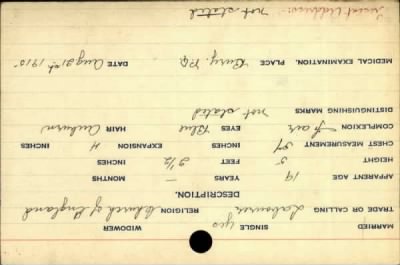 MARRIED SINGLE yes WIDOWER
TRADE OR CALLING Labourer RELIGION Church of England
DESCRIPTION.
APPARENT AGE 19 YEARS — MONTHS
HEIGHT 5 FEET 2 1/2 INCHES
CHEST MEASUREMENT 34 INCHES EXPANSION 4 INCHES
COMPLEXION Fair EYES Blue HAIR Auburn
DISTINGUISHING MARKS not stated
MEDICAL EXAMINATION. PLACE Bury. P.Q. DATE Aug 21st 1915
Address: not stated